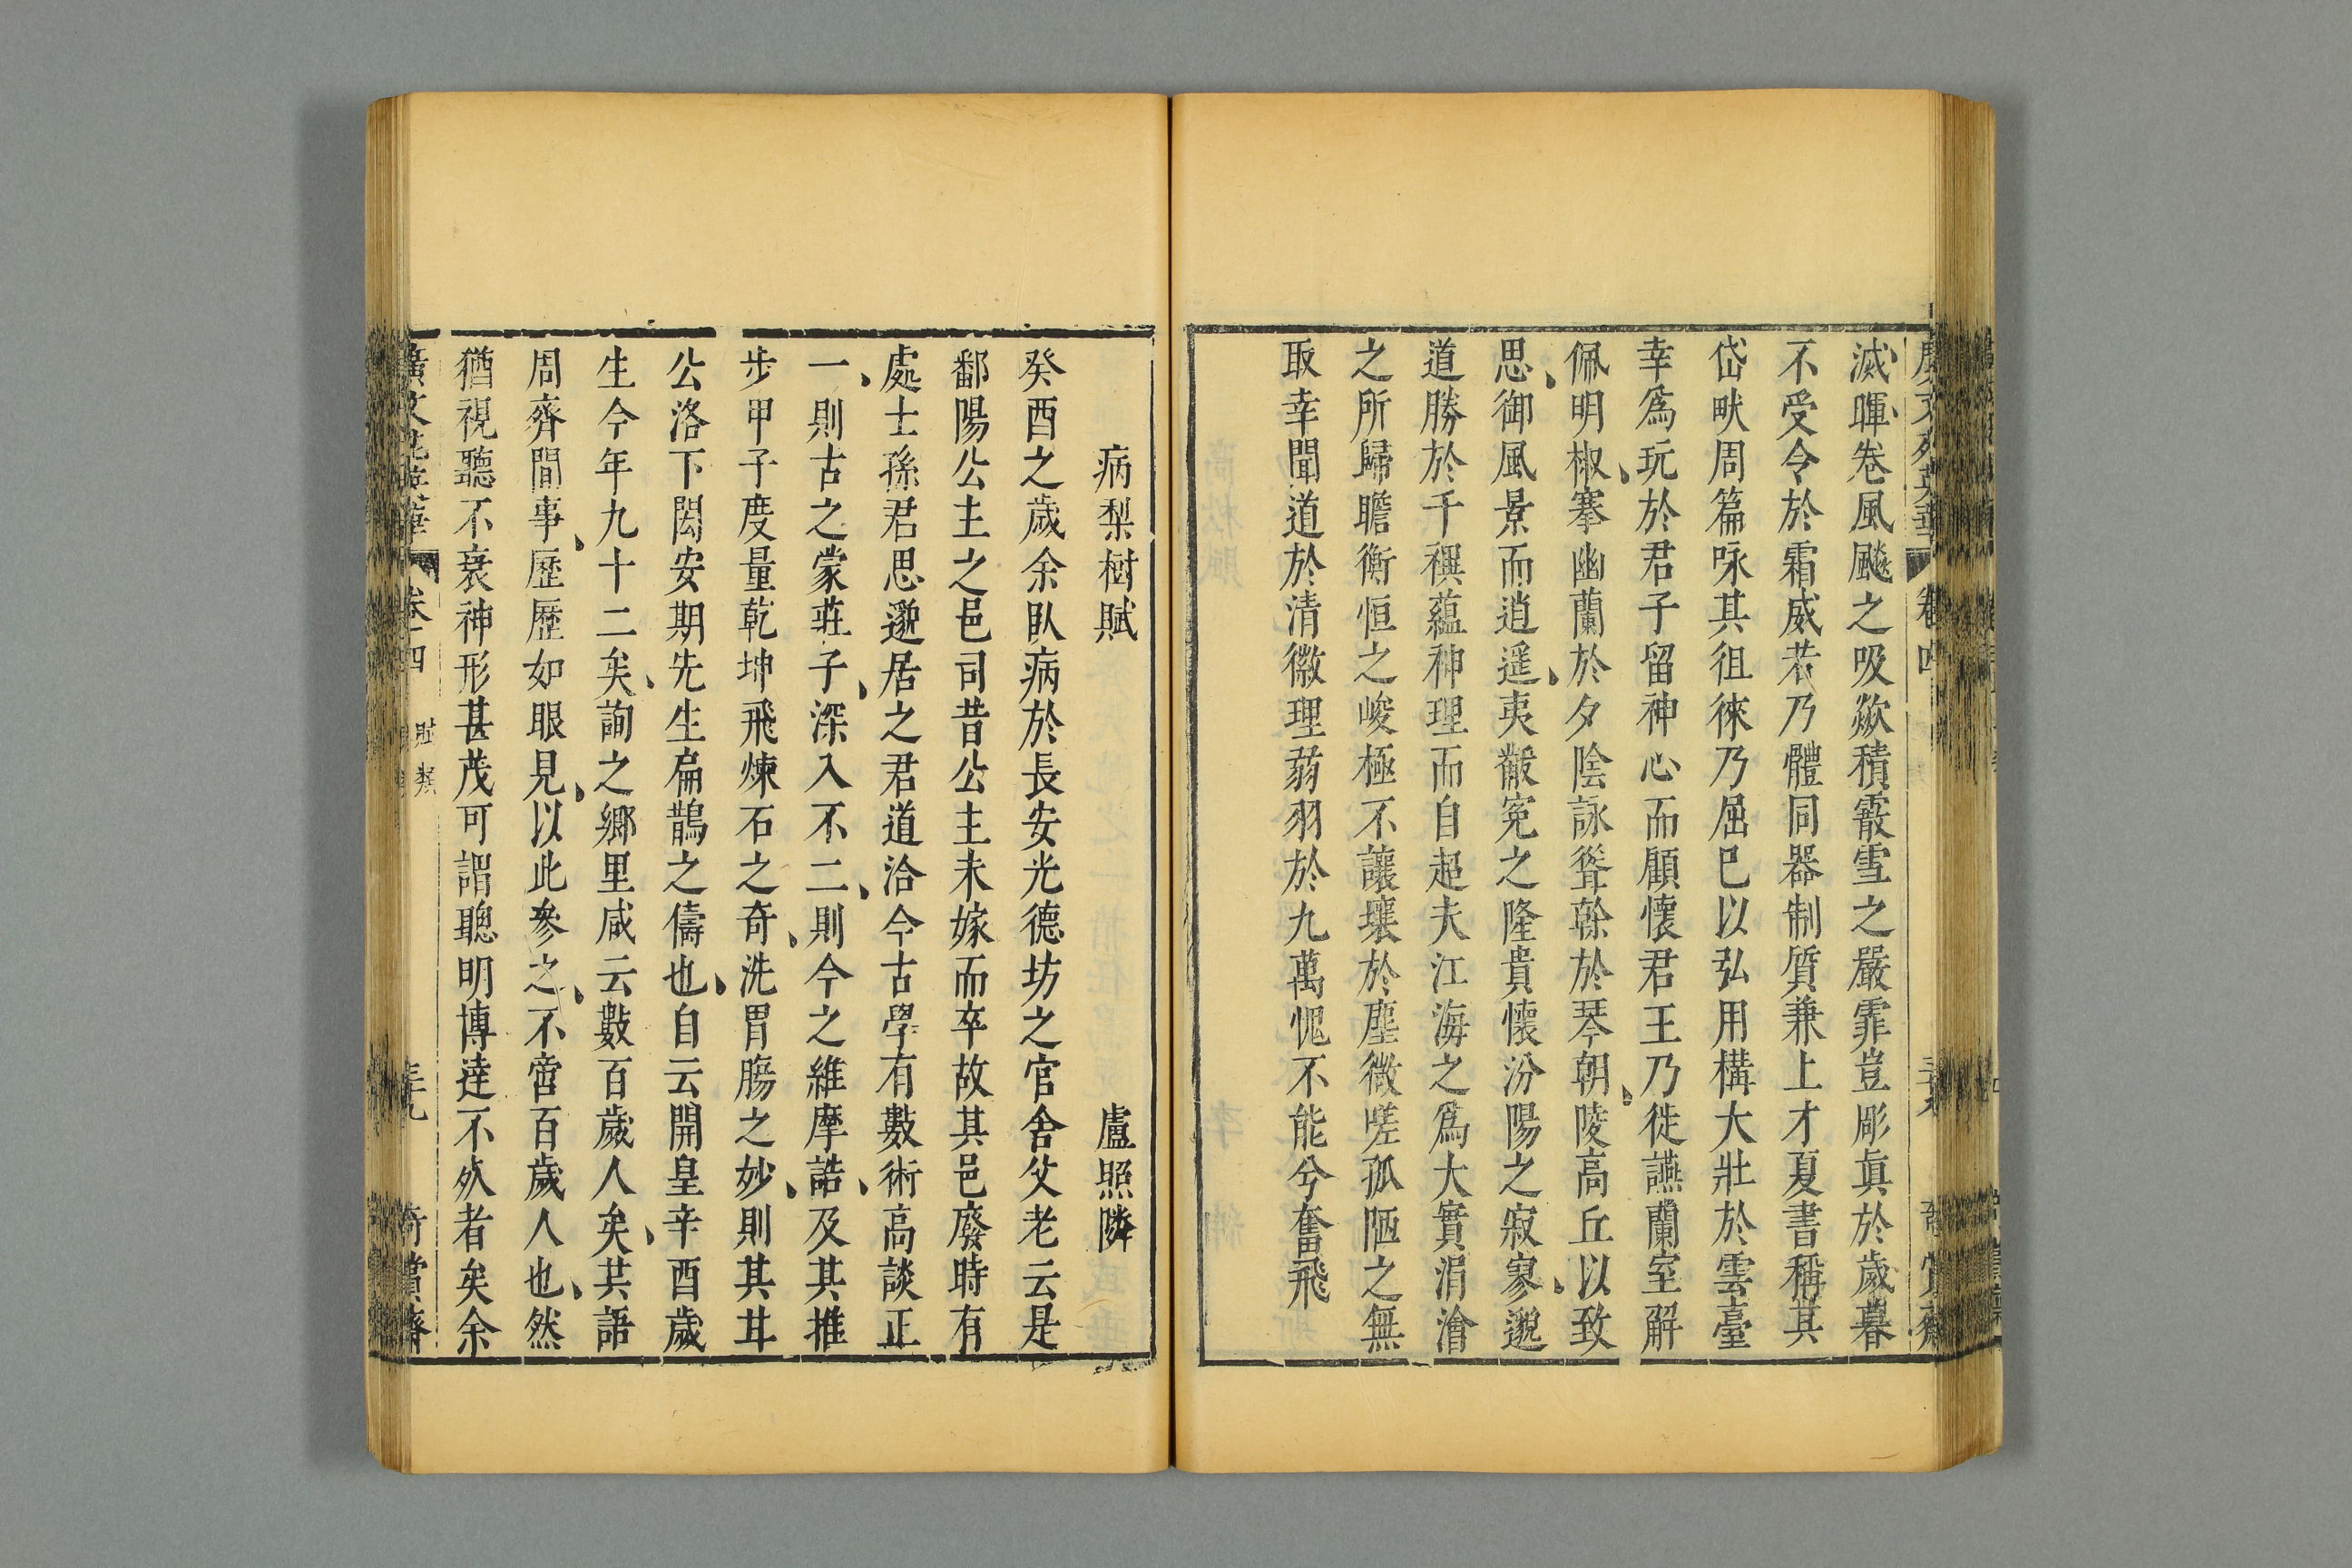 滅暉卷風飇之吸歘積霰雪之嚴霏豈彫眞於歲暮
不受令於霜威若乃體同器制質兼上才夏書稱其
岱畎周篇咏其徂徠乃屈巳以弘用構大壯於雲臺
幸爲玩於君子留神心而顧懷君王乃徙讌蘭室解
佩明椒搴幽蘭於夕陰詠聳榦於琴朝陵高丘以致
思御風景而逍遥夷黻冕之隆貴懷汾陽之寂寥邈
道勝於千禩蘊神理而自超夫江海之爲大實涓澮
之所歸瞻衡恒之峻極不讓壤於塵微嗟孤陋之無
取幸聞道於清徽理蒻羽於九萬愧不能兮奮飛
病梨樹賦　盧照隣
癸酉之歲余臥病於長安光德坊之官舍父老云是
鄱陽公主之邑司昔公主未嫁而卒故其邑廢時有
處士孫君思邈居之君道洽今古學有數術高談正
一則古之蒙莊子深入不二則今之維摩誥及其推
步甲子度量乾坤飛煉石之奇洗胃腸之妙則其甘
公洛下閎安期先生扁鵲之儔也自云開皇辛酉歲
生今年九十二矣詢之鄉里咸云數百歲人矣其語
周齊間事歷歷如眼見以此參之不啻百歲人也然
猶視聽不衰神形甚茂可謂聰明博達不死者矣余
廣文苑英華　卷十四　賦類　三十九　奇賞齋